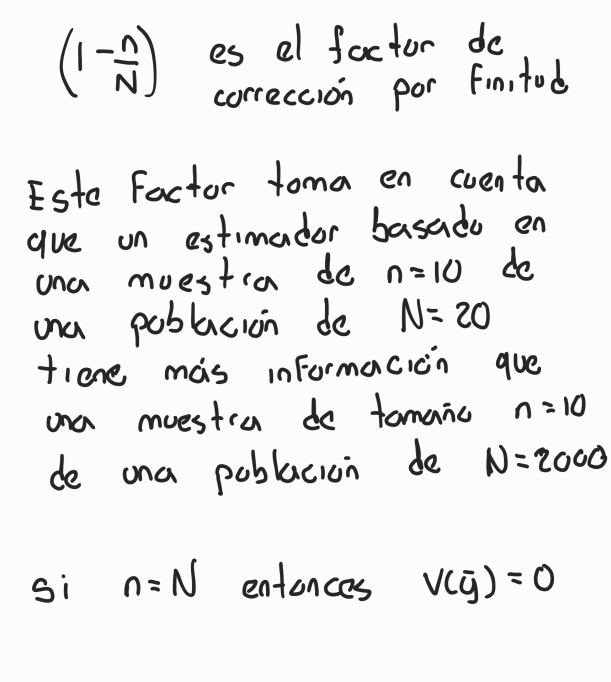 (1 - n/N) es el factor de
corrección por Finitud
Este Factor toma en cuenta
que un estimador basado en
una muestra de n=10 de
una población de N= 20
tiene más información que
una muestra de tamaño n=10
de una población de N=2000
Si n=N entonces V(ȳ) = 0